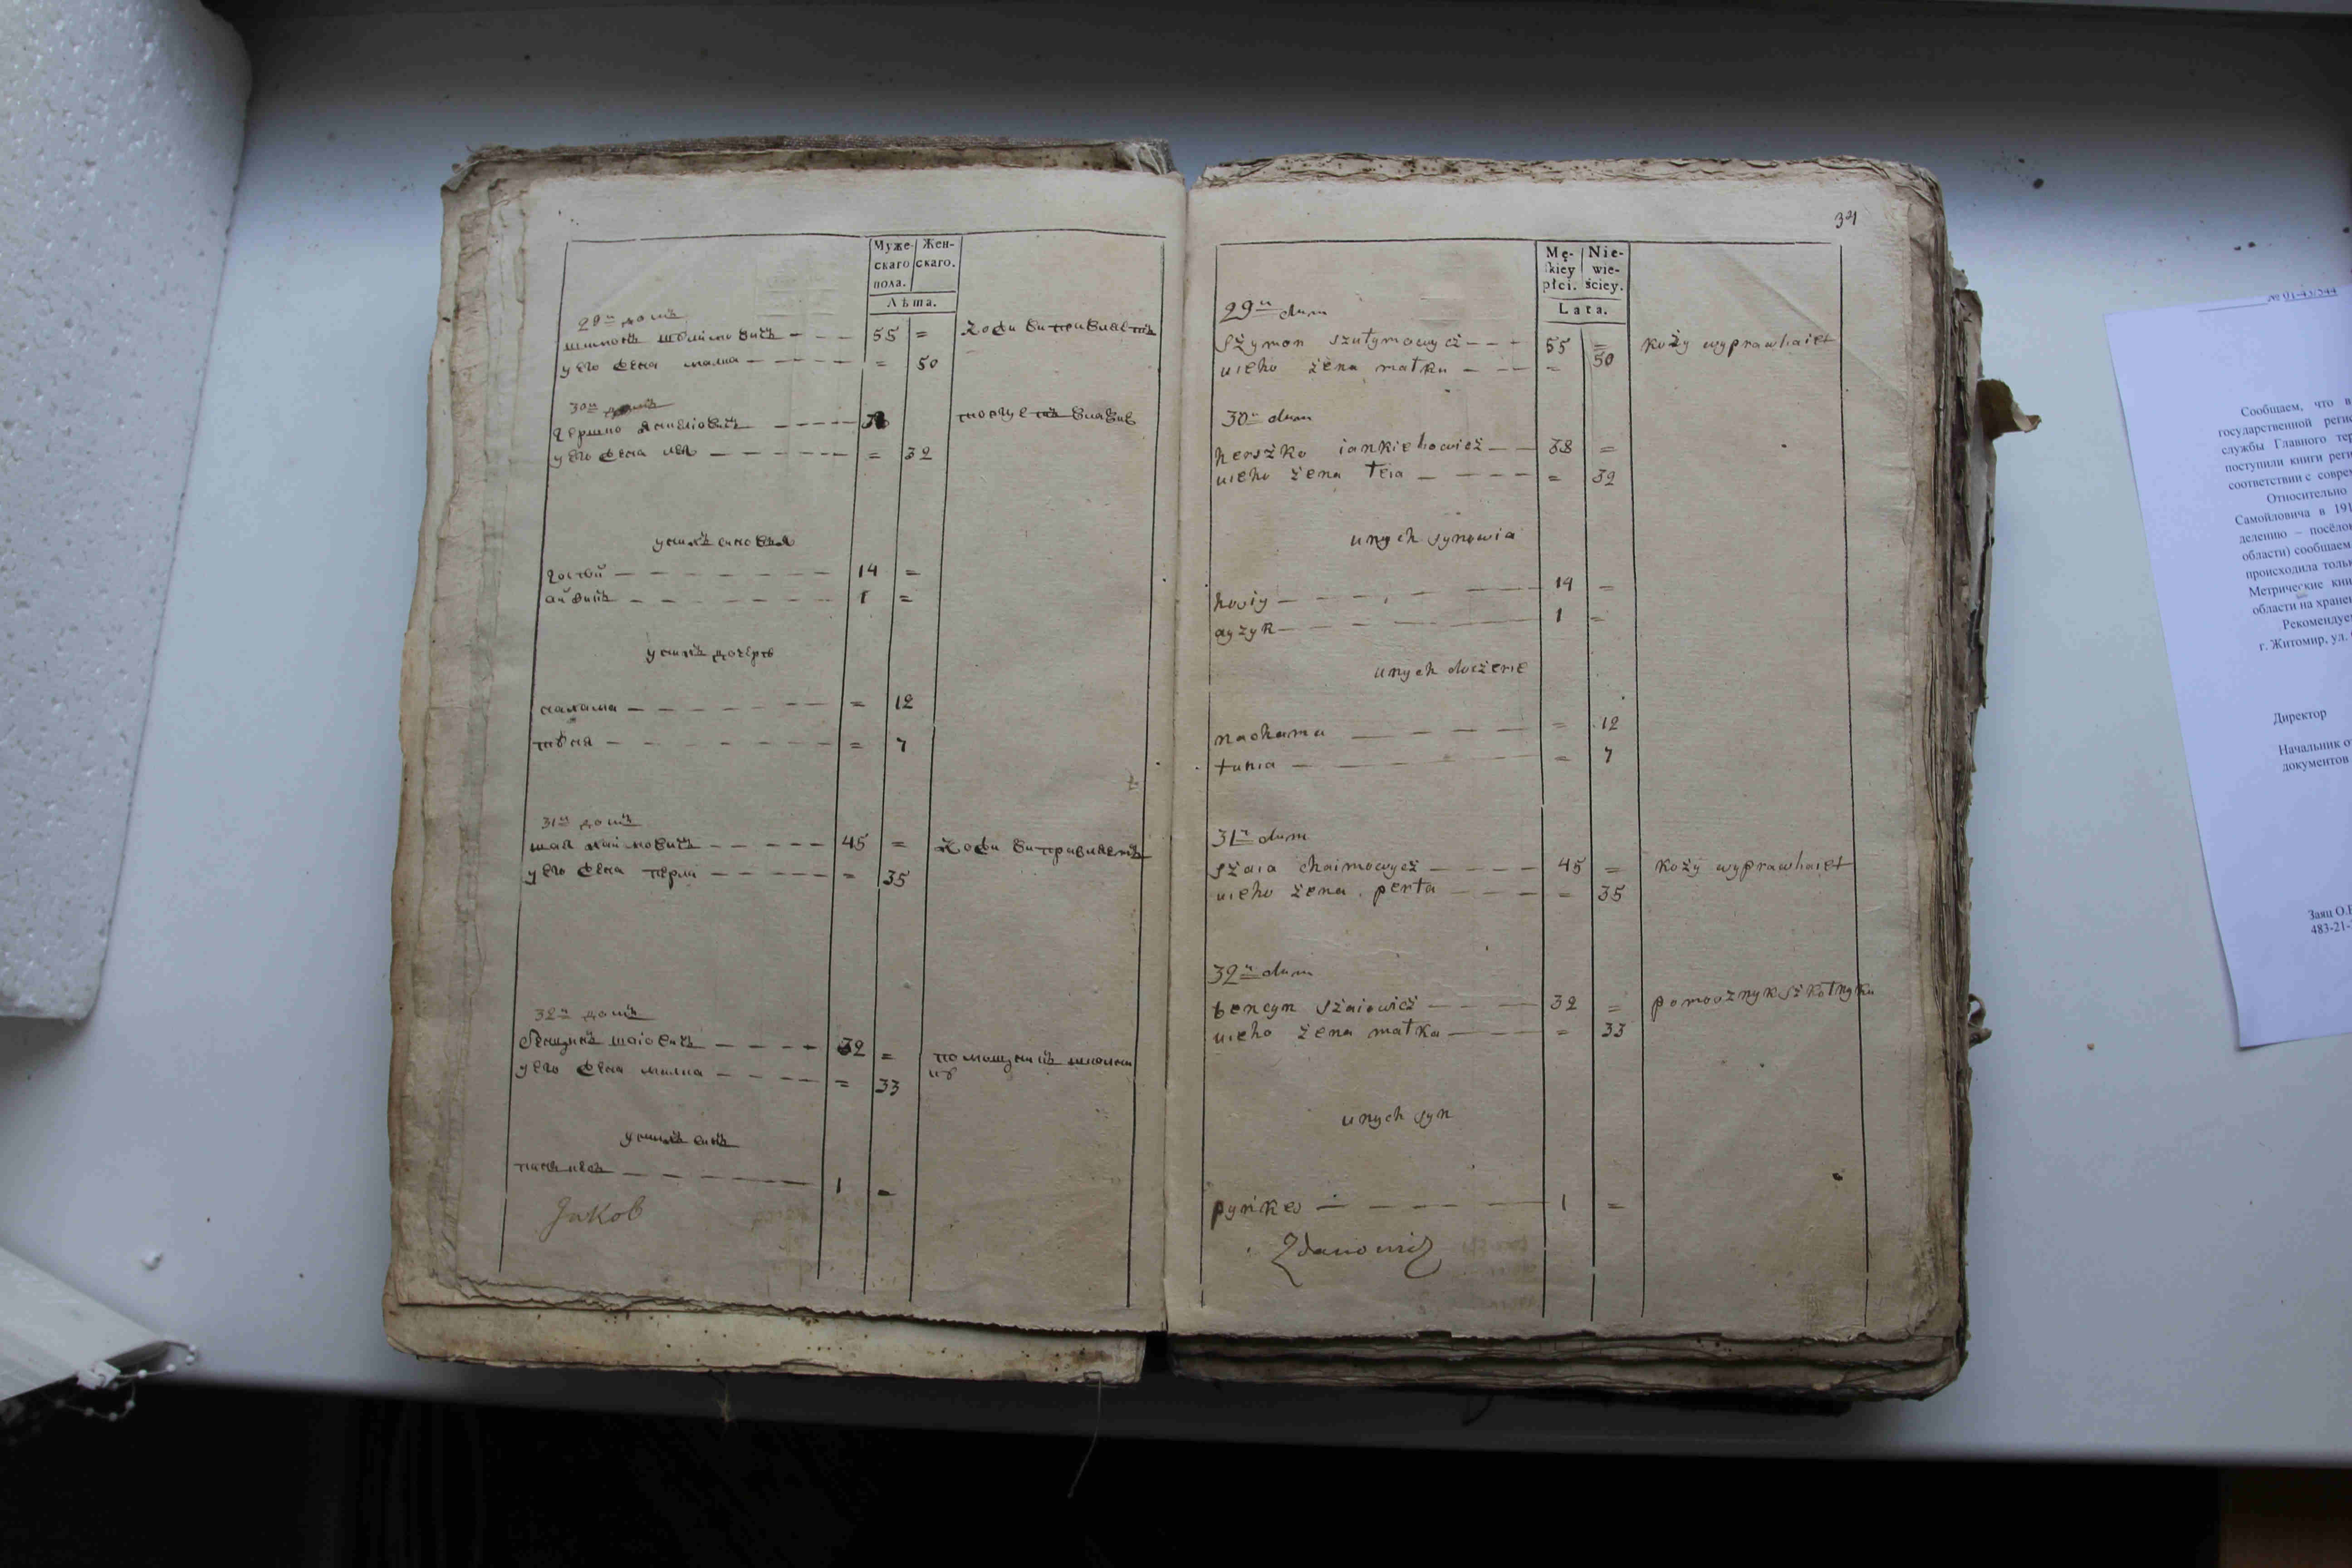 Муже- Жен-
скаго скаго.
пола.
Лѣта.
29й домъ
55 =
у его жена малка = 50
30й домъ
38
у его жена лея = 32
у нихъ синовья
14 =
1 =
у нихъ дочерѣ
нахама = 12
7
31й домъ
шая хаймовичъ 45 = кожи виправляетъ
у его жена перла = 35
32й домъ
32 = помощникъ школни
ка
у его жена малка = 33
у нихъ синъ
пинкесъ 1 =
Jakob
321
Mę- Nie-
ſkiey wie-
płci. ściey.
Lata.
29й dum
Szymon szulymowycż 55 = koży wyprawlaiet
uieho żena małka = 50
30й dum
herszko iankielowicż 38 =
uieho żena łeia = 32
unych synowia
hosiy 14 =
ayzyk 1 =
unych doczerie
nachama = 12
tunia = 7
31й dum
szaia chaimowycż 45 = kożŷ wyprawlaiet
uieho żena perła = 35
32й dum
bencyn szaiowicż 32 = pomocżnyk szkołnyka
uieho żena małka = 33
unych syn
pynkes 1 =
Zdanowicz
№ 01-43/544
Сообщаем, что в
государственной реги
службы Главного тер
поступили книги реги
соответствии с соврем
Относительно
Самойловича в 191
делению – посёлок
области) сообщаем
происходила тольк
Метрические кни
области на хранен
Рекомендуе
г. Житомир, ул.
Директор
Начальник о
документов
Заяц О.В
483-21-